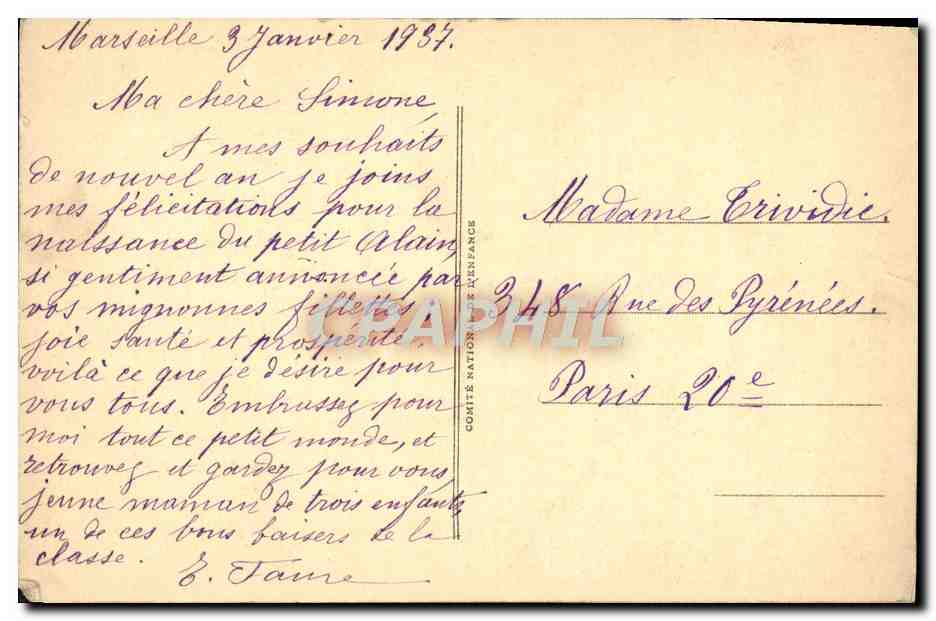 Marseille 3 Janvier 1937.
Ma chère Simone,
A mes souhaits
de nouvel an je joins
mes félicitations pour la
naissance du petit Alain,
si gentiment annoncée par
vos mignonnes fillettes,
joie santé et prospérité,
voilà ce que je désire pour
vous tous. Embrassez pour
moi tout ce petit monde, et
retrouvez et gardez pour vous,
jeune maman de trois enfants,
un de ces bons baisers de la
classe.
E. Faure
COMITÉ NATIONAL DE L'ENFANCE
Madame Trividic.
348 Rue des Pyrénées.
Paris 20e
CPAPHIL